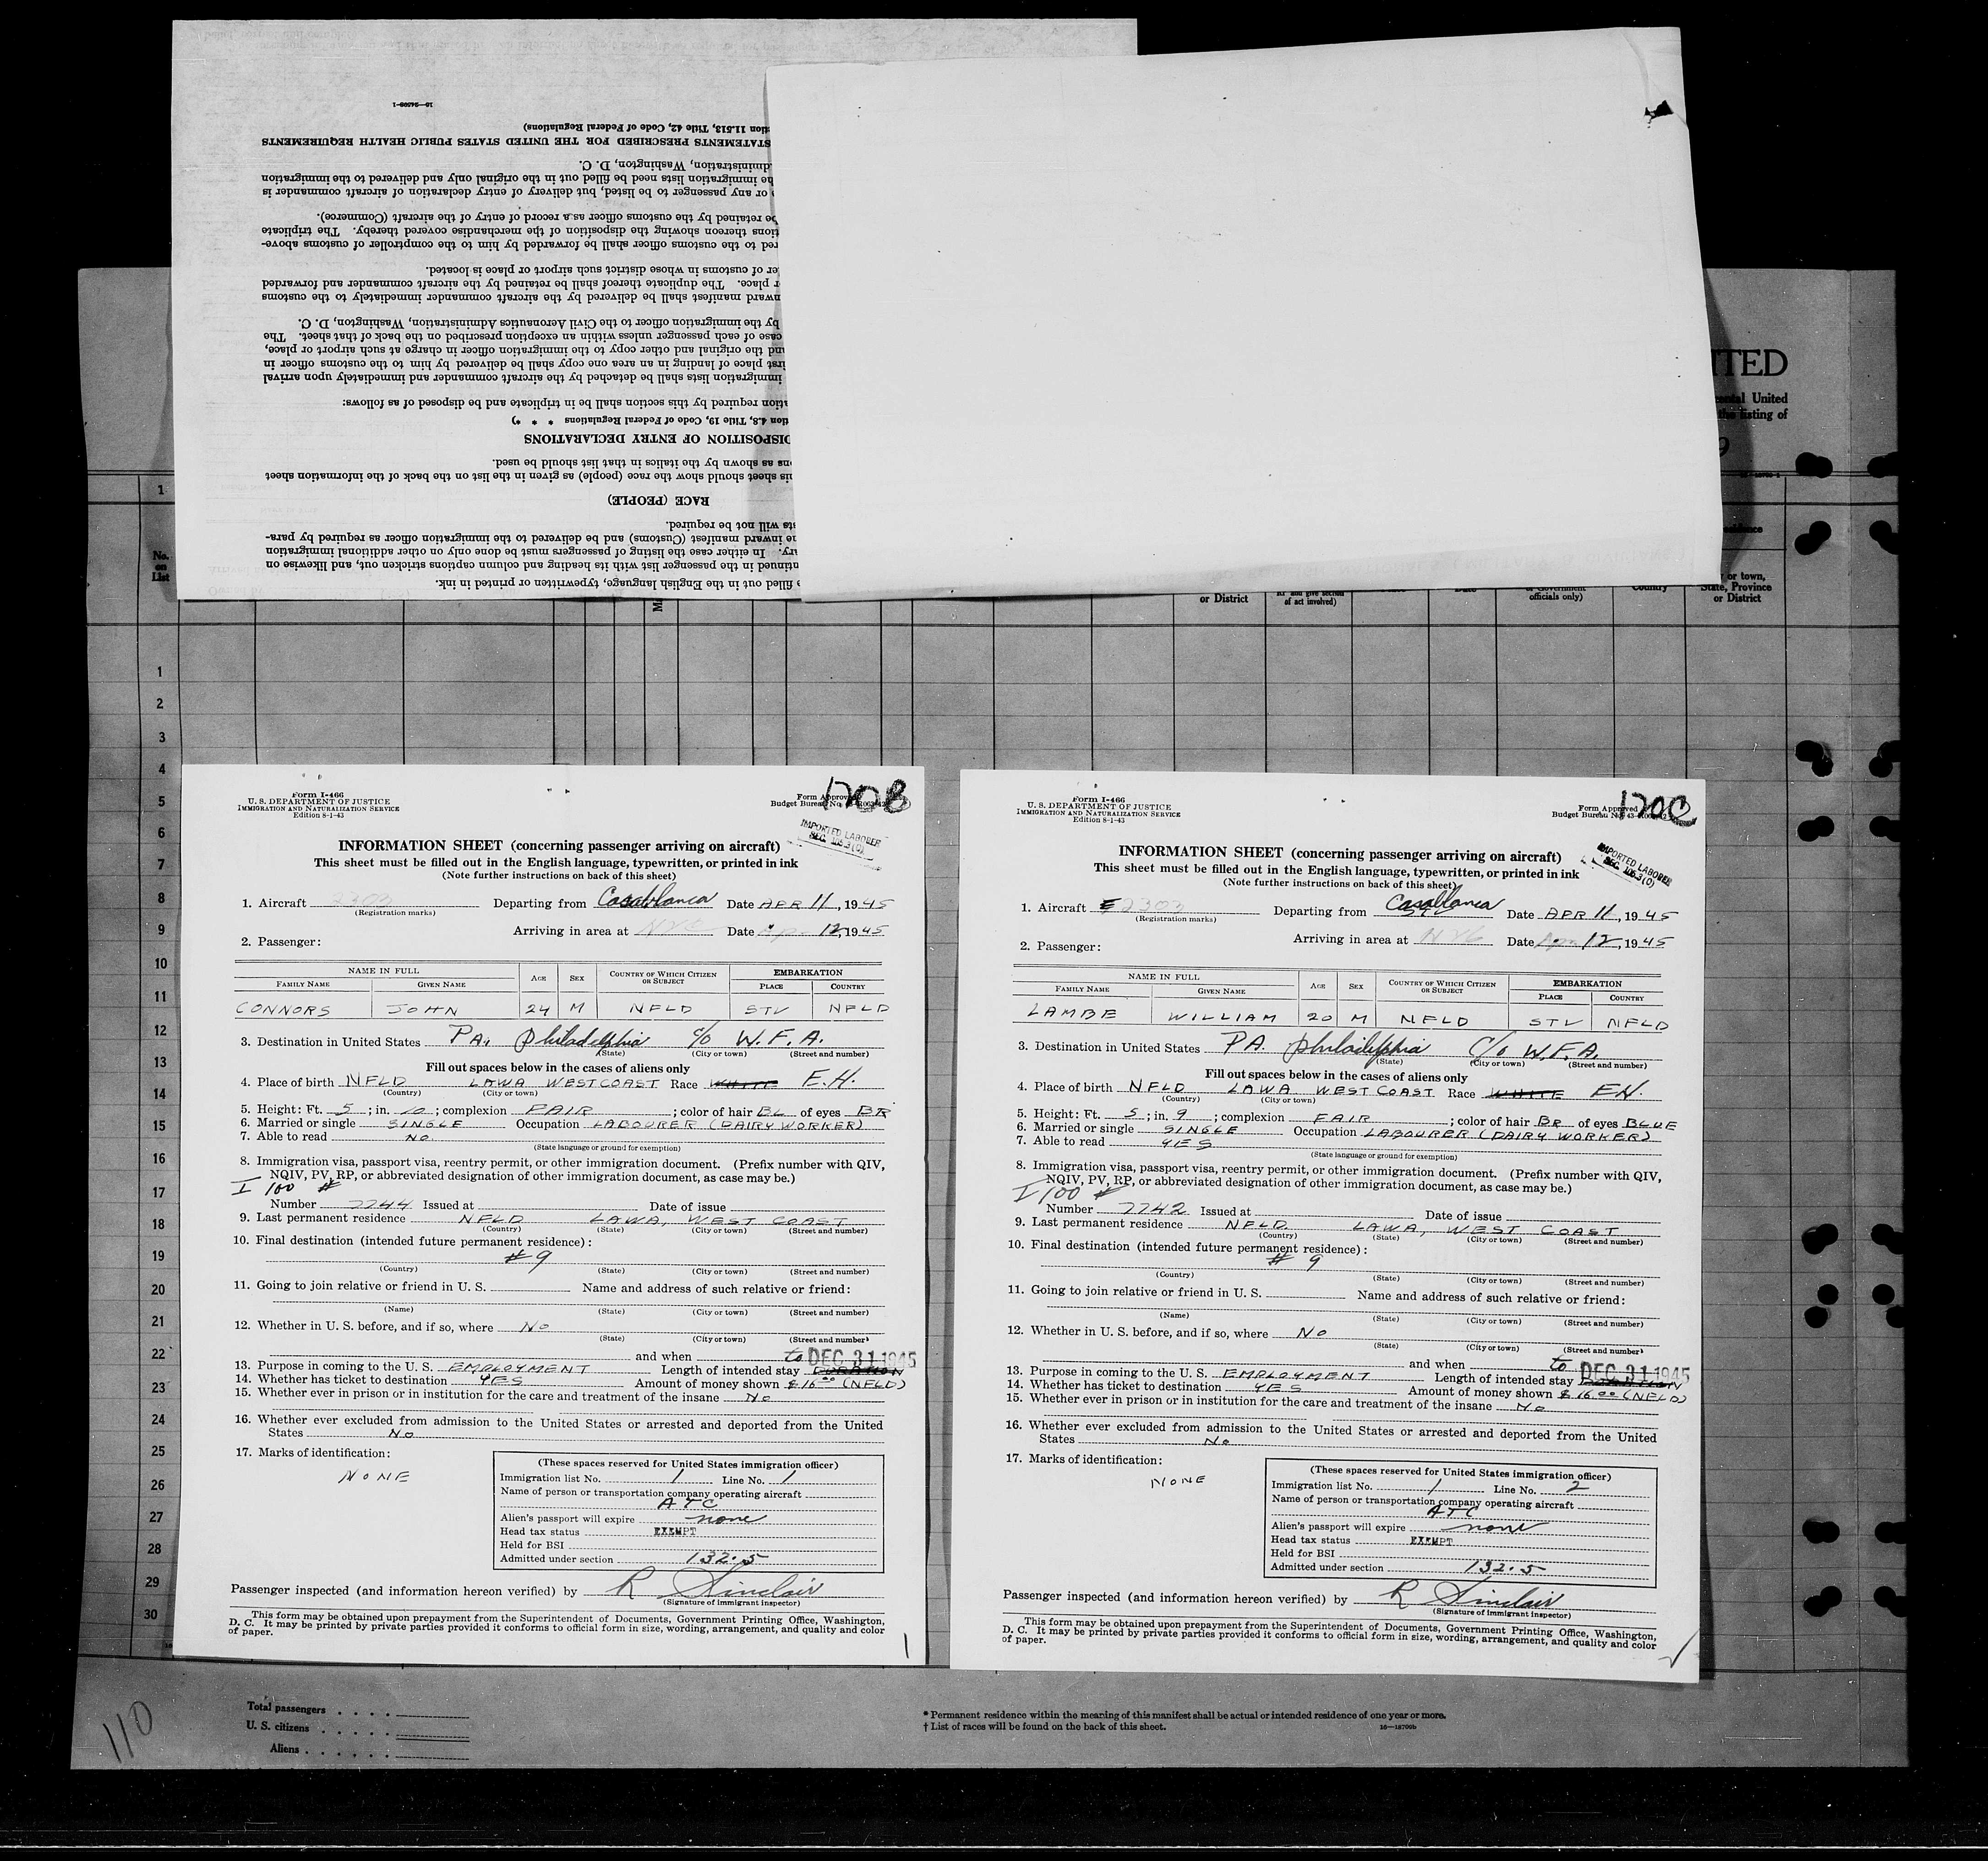 16—24598-1
tion 11.513, Title 42, Code of Federal Regulations)
STATEMENTS PRESCRIBED FOR THE UNITED STATES PUBLIC HEALTH REQUIREMENTS
dministration, Washington, D. C.
he immigration lists need be filled out in the original only and delivered to the immigration
e or any passenger to be listed, but delivery of entry declaration of aircraft commander is
be retained by the customs officer as a record of entry of the aircraft (Commerce).
tions thereon showing the disposition of the merchandise covered thereby. The triplicate
red to the customs officer shall be forwarded by him to the comptroller of customs above-
er of customs in whose district such airport or place is located.
r place. The duplicate thereof shall be retained by the aircraft commander and forwarded
nward manifest shall be delivered by the aircraft commander immediately to the customs
by the immigration officer to the Civil Aeronautics Administration, Washington, D. C.
case of each passenger unless within an exception prescribed on the back of that sheet. The
nd the original and other copy to the immigration officer in charge at such airport or place,
irst place of landing in an area one copy shall be delivered by him to the customs officer in
immigration lists shall be detached by the aircraft commander and immediately upon arrival
ation required by this section shall be in triplicate and be disposed of as follows:
tion 4.8, Title 19, Code of Federal Regulations * * *)
DISPOSITION OF ENTRY DECLARATIONS
ons as shown by the italics in that list should be used.
his sheet should show the race (people) as given in the list on the back of the information sheet
RACE (PEOPLE)
sts will not be required.
he inward manifest (Customs) and be delivered to the immigration officer as required by para-
ry. In either case the listing of passengers must be done only on other additional immigration
ntinued in the passenger list with its heading and column captions stricken out, and likewise on
e filled out in the English language, typewritten or printed in ink.
ITED
ental United
the listing of
9
1
No. on List
or District
of act involved)
officials only)
Country
or town, State, Province or District
1
2
3
4
5
6
7
8
9
10
11
12
13
14
15
16
17
18
19
20
21
22
23
24
25
26
27
28
29
30
Form I-466
U. S. DEPARTMENT OF JUSTICE
IMMIGRATION AND NATURALIZATION SERVICE
Edition 8-1-43
Form Approved
Budget Bureau No.
170B
IMPORTED LABORER
SEC. 106.3(0)
INFORMATION SHEET (concerning passenger arriving on aircraft)
This sheet must be filled out in the English language, typewritten, or printed in ink
(Note further instructions on back of this sheet)
1. Aircraft 2303 Departing from Casablanca Date APR 11, 1945
(Registration marks)
Arriving in area at NYC Date Apr 12, 1945
2. Passenger:
NAME IN FULL AGE SEX COUNTRY OF WHICH CITIZEN OR SUBJECT EMBARKATION
FAMILY NAME GIVEN NAME PLACE COUNTRY
CONNORS JOHN 24 M NFLD STV NFLD
3. Destination in United States PA. Philadelphia c/o W.F.A.
(State) (City or town) (Street and number)
Fill out spaces below in the cases of aliens only
4. Place of birth NFLD LAWA WEST COAST Race WHITE E.H.
(Country) (City or town)
5. Height: Ft. 5; in. 10; complexion FAIR; color of hair BL of eyes BR
6. Married or single SINGLE Occupation LABOURER (DAIRY WORKER)
7. Able to read NO.
(State language or ground for exemption)
8. Immigration visa, passport visa, reentry permit, or other immigration document. (Prefix number with QIV,
NQIV, PV, RP, or abbreviated designation of other immigration document, as case may be.)
I 100 #
Number 7744 Issued at Date of issue
9. Last permanent residence NFLD LAWA, WEST COAST
(Country) (State) (City or town) (Street and number)
10. Final destination (intended future permanent residence):
# 9
(Country) (State) (City or town) (Street and number)
11. Going to join relative or friend in U. S. Name and address of such relative or friend:
(Name) (State) (City or town) (Street and number)
12. Whether in U. S. before, and if so, where No
(State) (City or town) (Street and number)
and when to DEC 31 1945
13. Purpose in coming to the U. S. EMPLOYMENT Length of intended stay DURATION
14. Whether has ticket to destination YES Amount of money shown $16.00 (NFLD)
15. Whether ever in prison or in institution for the care and treatment of the insane No
16. Whether ever excluded from admission to the United States or arrested and deported from the United
States No
17. Marks of identification:
NONE
(These spaces reserved for United States immigration officer)
Immigration list No. 1 Line No. 1
Name of person or transportation company operating aircraft
ATC
Alien's passport will expire none
Head tax status EXEMPT
Held for BSI
Admitted under section 132.5
Passenger inspected (and information hereon verified) by R Sinclair
(Signature of immigrant inspector)
This form may be obtained upon prepayment from the Superintendent of Documents, Government Printing Office, Washington,
D. C. It may be printed by private parties provided it conforms to official form in size, wording, arrangement, and quality and color
of paper.
1
Form I-466
U. S. DEPARTMENT OF JUSTICE
IMMIGRATION AND NATURALIZATION SERVICE
Edition 8-1-43
Form Approved
Budget Bureau No. 43-
170C
IMPORTED LABORER
SEC. 106.3(0)
INFORMATION SHEET (concerning passenger arriving on aircraft)
This sheet must be filled out in the English language, typewritten, or printed in ink
(Note further instructions on back of this sheet)
1. Aircraft 2303 Departing from Casablanca Date APR 11, 1945
(Registration marks)
Arriving in area at NYC Date Apr 12, 1945
2. Passenger:
NAME IN FULL AGE SEX COUNTRY OF WHICH CITIZEN OR SUBJECT EMBARKATION
FAMILY NAME GIVEN NAME PLACE COUNTRY
LAMBE WILLIAM 20 M NFLD STV NFLD
3. Destination in United States PA. Philadelphia C/o W.F.A.
(State) (City or town) (Street and number)
Fill out spaces below in the cases of aliens only
4. Place of birth NFLD LAWA WEST COAST Race WHITE EH.
(Country) (City or town)
5. Height: Ft. 5; in. 9; complexion FAIR; color of hair BR of eyes BLUE
6. Married or single SINGLE Occupation LABOURER (DAIRY WORKER)
7. Able to read YES
(State language or ground for exemption)
8. Immigration visa, passport visa, reentry permit, or other immigration document. (Prefix number with QIV,
NQIV, PV, RP, or abbreviated designation of other immigration document, as case may be.)
I 100 #
Number 7742 Issued at Date of issue
9. Last permanent residence NFLD LAWA, WEST COAST
(Country) (State) (City or town) (Street and number)
10. Final destination (intended future permanent residence):
# 9
(Country) (State) (City or town) (Street and number)
11. Going to join relative or friend in U. S. Name and address of such relative or friend:
(Name) (State) (City or town) (Street and number)
12. Whether in U. S. before, and if so, where No
(State) (City or town) (Street and number)
and when to DEC 31 1945
13. Purpose in coming to the U. S. EMPLOYMENT Length of intended stay DURATION
14. Whether has ticket to destination YES Amount of money shown $16.00 (NFLD)
15. Whether ever in prison or in institution for the care and treatment of the insane No
16. Whether ever excluded from admission to the United States or arrested and deported from the United
States No
17. Marks of identification:
NONE
(These spaces reserved for United States immigration officer)
Immigration list No. 1 Line No. 2
Name of person or transportation company operating aircraft
ATC
Alien's passport will expire none
Head tax status EXEMPT
Held for BSI
Admitted under section 132.5
Passenger inspected (and information hereon verified) by R Sinclair
(Signature of immigrant inspector)
This form may be obtained upon prepayment from the Superintendent of Documents, Government Printing Office, Washington,
D. C. It may be printed by private parties provided it conforms to official form in size, wording, arrangement, and quality and color
of paper.
110
Total passengers . . . .
U. S. citizens . . . . .
Aliens . . . . . .
* Permanent residence within the meaning of this manifest shall be actual or intended residence of one year or more.
† List of races will be found on the back of this sheet.
16—18700b